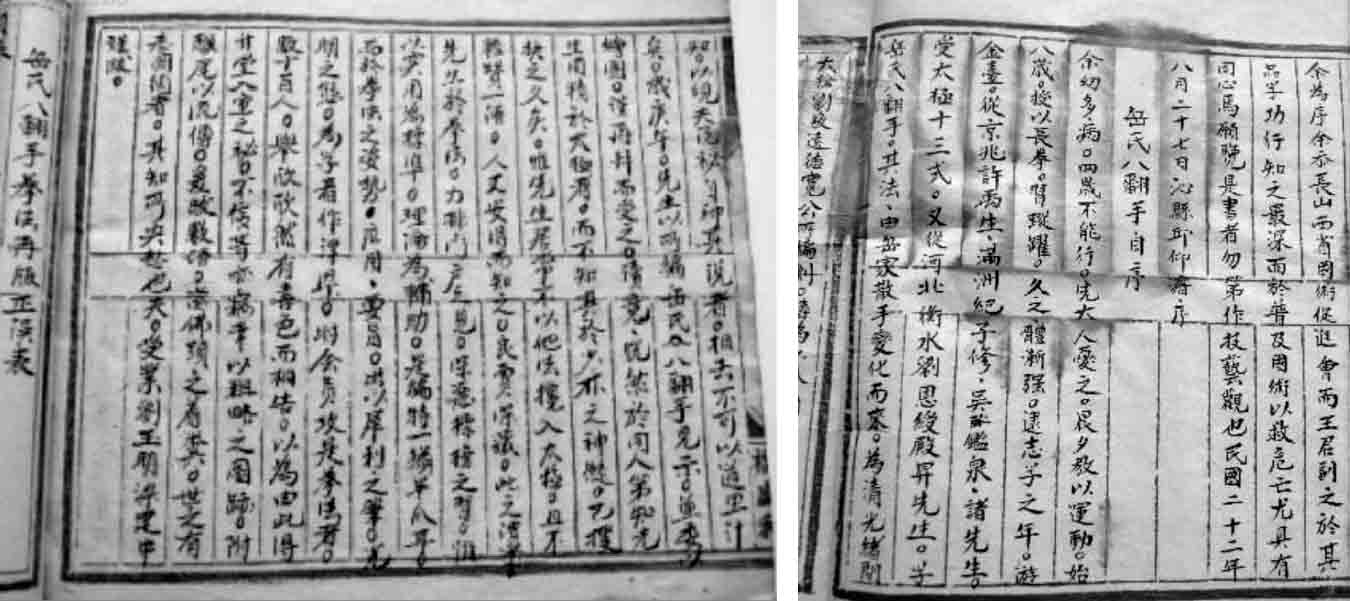 余為序余忝長山西省國術促進會而王君副之於其
品学功行知之最深而於普及國術以救危亡尤具有
同心焉願覽是書者勿第作技藝觀也民國二十二年
八月二十七日沁縣邱仰濬序
岳氏八翻手自序
余幼多病。四歲不能行。先大人憂之。晨夕教以運動。始
八歲。授以長拳。習蹤躍。久之體漸强。逮志学之年。遊
金臺。從京兆許禹生、滿洲紀子修、吳鑑泉、諸先生。
受太極十三式。又從河北衡水劉恩綬殿昇先生。学
岳氏八翻手。其法、由岳家散手變化而來。為清光緒間
大槍劉敬遠德寬公
知。以視夫詭秘自神其說者。相去不可以道里計
矣。歲庚午。先生以所编岳氏八翻手見示。並委為
繪圖。謹再拜而受之。讀竟、恍然於同人第知先
生之精於太極者。而不知其於少林之神髓。已獲
抉之久矣。惟先生居常不以他法攙入太極。且不
輕贊一語。人又安得而知之。
先生於拳法。力排門户之見。深惡標榜之習。惟
以实用為標準。理論為輔助。是編特一鱗半爪耳。
而於拳法之姿勢。应用、要旨。出以犀利之筆。
明之態。為学者作津梁。时会员攻是拳法者。
數十百人。舉欣欣然有喜色而相告。以為由此得
升堂入室之秘。不侫等亦竊幸以粗略之圖跡。附
驥尾以流傳。爰敢數語。佛頭之着粪。世之有
志国術者。其知所央擇也夫。受業劉玉明梁建中
謹跋。
岳氏八翻手拳法再版正误表